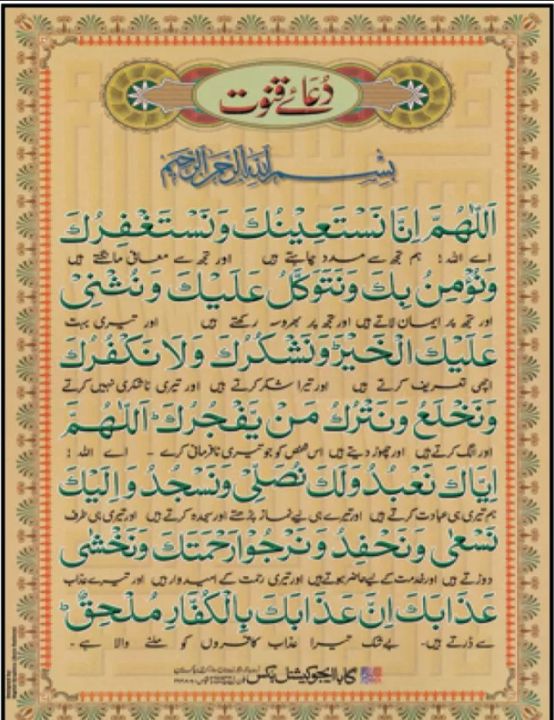 دُعائے قنوت
بِسْمِ اللهِ الرَّحْمٰنِ الرَّحِيْمِ
اَللّٰهُمَّ اِنَّا نَسْتَعِيْنُكَ وَنَسْتَغْفِرُكَ
اے اللہ! ہم تجھ سے مدد چاہتے ہیں اور تجھ سے معافی مانگتے ہیں
وَنُؤْمِنُ بِكَ وَنَتَوَكَّلُ عَلَيْكَ وَنُثْنِىْ
اور تجھ پر ایمان لاتے ہیں اور تجھ پر بھروسہ رکھتے ہیں اور تیری بہت
عَلَيْكَ الْخَيْرَ وَنَشْكُرُكَ وَلَا نَكْفُرُكَ
اچھی تعریف کرتے ہیں اور تیرا شکر کرتے ہیں اور تیری ناشکری نہیں کرتے
وَنَخْلَعُ وَنَتْرُكُ مَنْ يَّفْجُرُكَ ط اَللّٰهُمَّ
اور الگ کرتے ہیں اور چھوڑ دیتے ہیں اس شخص کو جو تیری نافرمانی کرے - اے اللہ!
اِيَّاكَ نَعْبُدُ وَلَكَ نُصَلِّىْ وَنَسْجُدُ وَاِلَيْكَ
ہم تیری ہی عبادت کرتے ہیں اور تیرے ہی لیے نماز پڑھتے اور سجدہ کرتے ہیں اور تیری ہی طرف
نَسْعٰى وَنَحْفِدُ وَنَرْجُوْا رَحْمَتَكَ وَنَخْشٰى
دوڑتے ہیں اور خدمت کے لیے حاضر ہوتے ہیں اور تیری رحمت کے امیدوار ہیں اور تیرے عذاب
عَذَابَكَ اِنَّ عَذَابَكَ بِالْكُفَّارِ مُلْحِقٌ ط
سے ڈرتے ہیں - بے شک تیرا عذاب کافروں کو ملنے والا ہے -
گابا ایجوکیشنل بکس